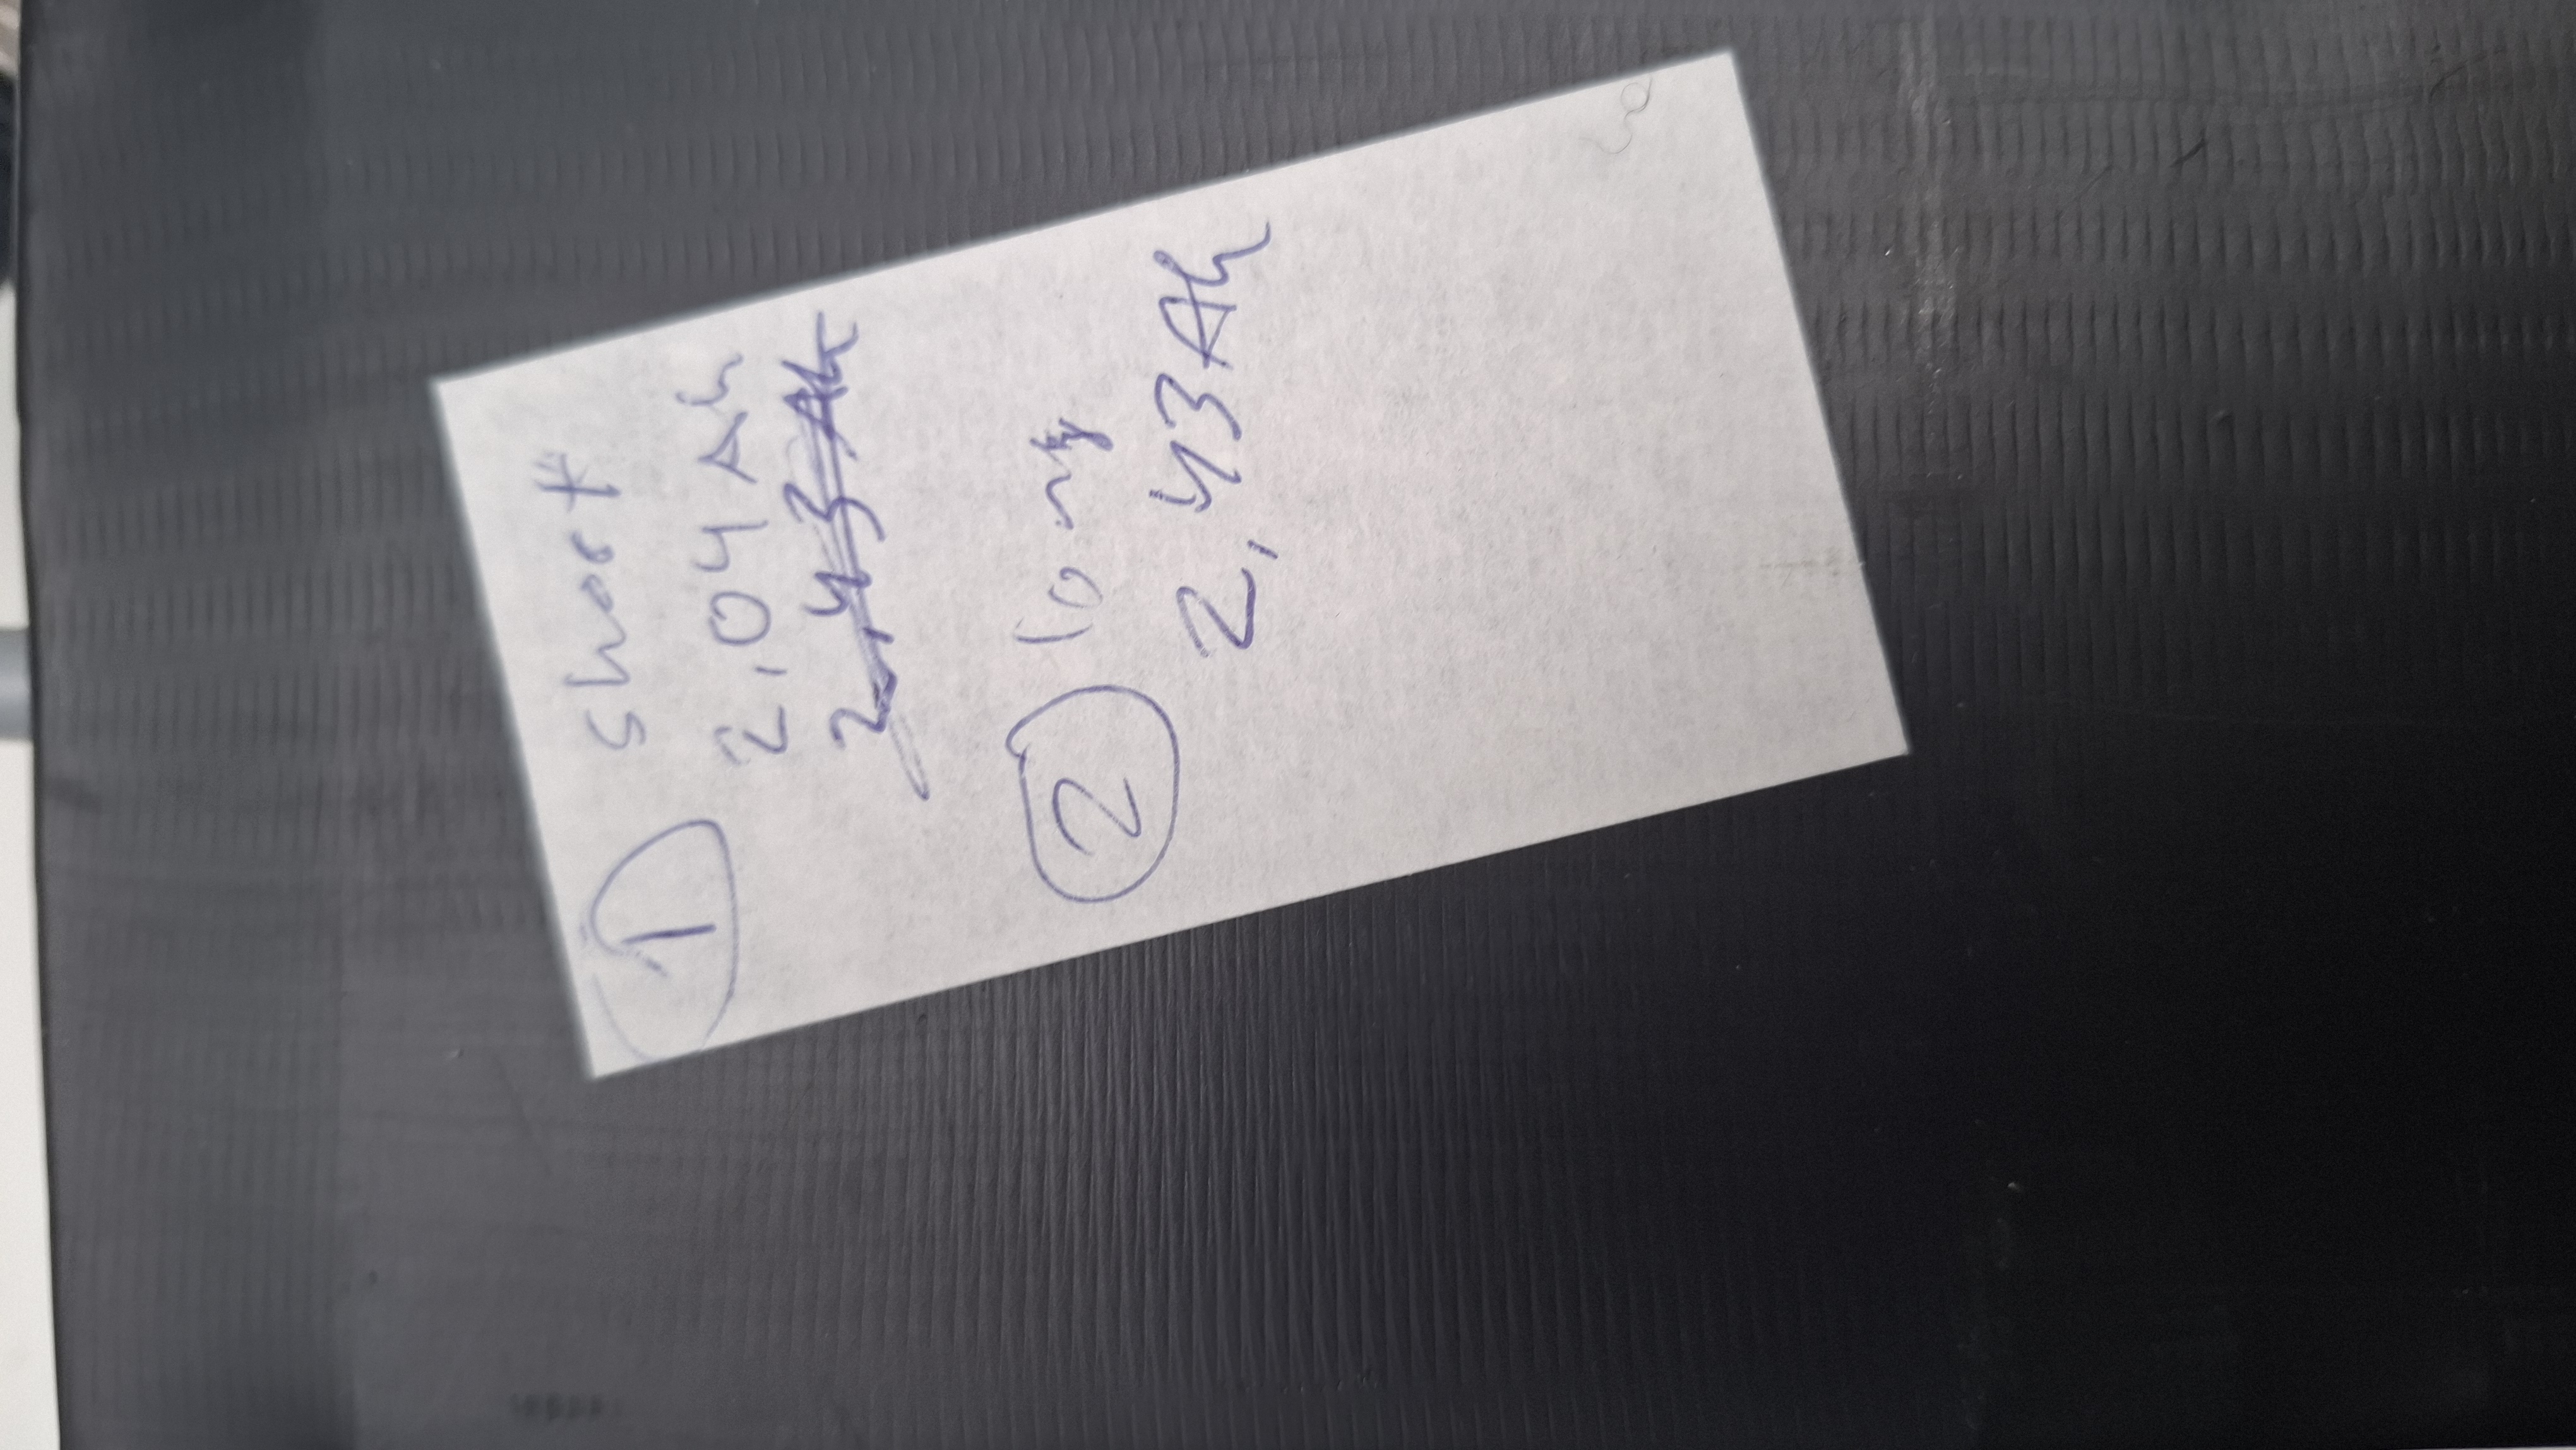 1 short
2,04 Ah
2,43 Ah
2 long
2,43 Ah